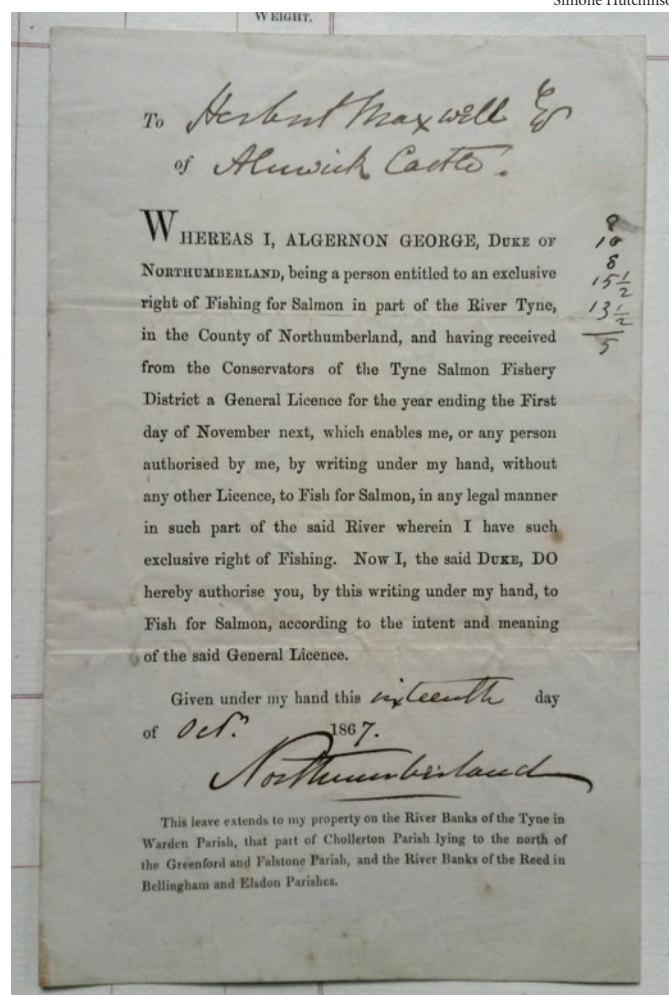 Simone Hutchinso
WEIGHT.
To Herbert Maxwell Esq
of Alnwick Castle.
WHEREAS I, ALGERNON GEORGE, DUKE OF
NORTHUMBERLAND, being a person entitled to an exclusive
right of Fishing for Salmon in part of the River Tyne,
in the County of Northumberland, and having received
from the Conservators of the Tyne Salmon Fishery
District a General Licence for the year ending the First
day of November next, which enables me, or any person
authorised by me, by writing under my hand, without
any other Licence, to Fish for Salmon, in any legal manner
in such part of the said River wherein I have such
exclusive right of Fishing. Now I, the said DUKE, DO
hereby authorise you, by this writing under my hand, to
Fish for Salmon, according to the intent and meaning
of the said General Licence.
Given under my hand this sixteenth day
of Octr. 1867.
Northumberland
This leave extends to my property on the River Banks of the Tyne in
Warden Parish, that part of Chollerton Parish lying to the north of
the Greenford and Falstone Parish, and the River Banks of the Reed in
Bellingham and Elsdon Parishes.
8
10
8
15 1/2
13 1/2
5